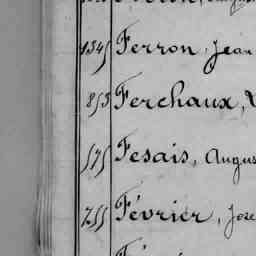 1345 Ferron, Jean
853 Ferchaux,
575 Fesais, Augus
755 Février, Jose